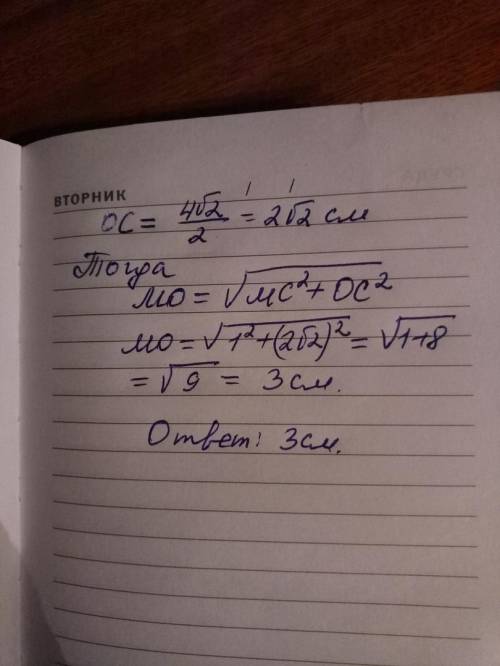 ВТОРНИК
OC = 4√2/2 = 2√2 см
Тогда
MO = √MC²+OC²
MO = √1²+(2√2)² = √1+8
= √9 = 3см.
Ответ: 3см.